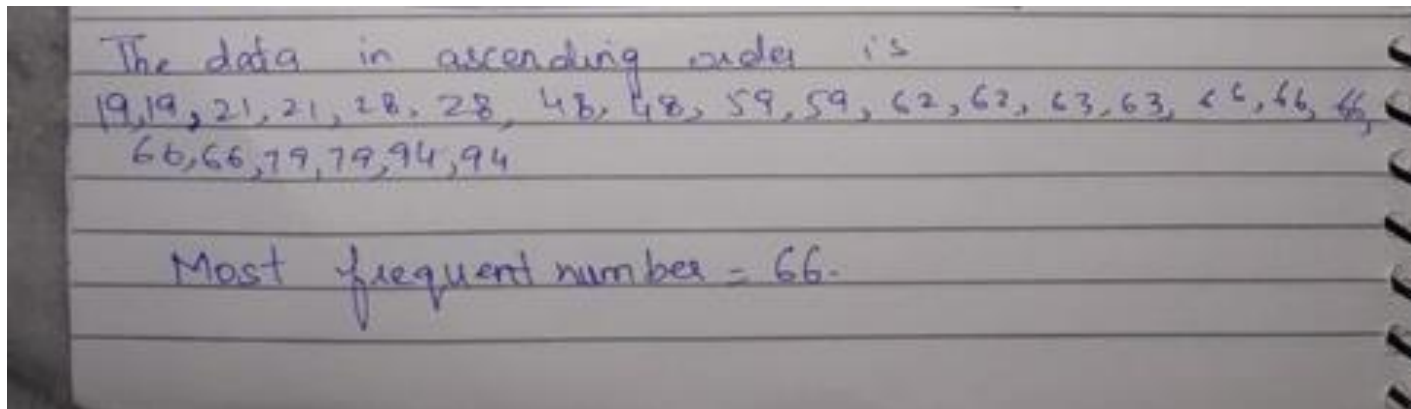 The data in ascending order is
19,19,21,21,28,28,48,48,59,59,62,62,63,63,66,66,66,
66,66,79,79,94,94
Most frequent number = 66.